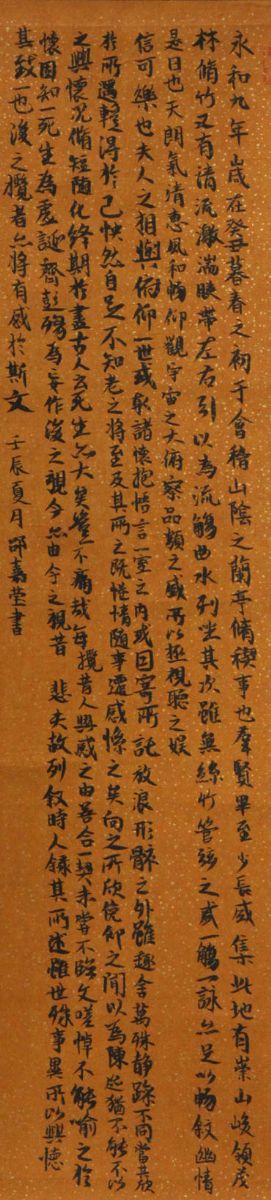 永和九年歲在癸丑暮春之初于會稽山陰之蘭亭脩稧事也羣賢畢至少長咸集此地有崇山峻領茂
林脩竹又有清流激湍暎帶左右引以為流觴曲水列坐其次雖無絲竹管弦之盛一觴一詠亦足以暢敘幽情
是日也天朗氣清惠風和暢仰觀宇宙之大俯察品類之盛所以極視聽之娛
信可樂也夫人之相與俯仰一世或取諸懷抱悟言一室之内或因寄所託放浪形骸之外雖趣舍萬殊静躁不同當其欣
於所遇蹔得於己怏然自足不知老之將至及其所之既惓情隨事遷感慨之矣向之所欣俛仰之間以為陳迹猶不能不以
之興懷況脩短隨化終期於盡古人云死生亦大矣豈不痛哉每攬昔人興感之由若合一契未嘗不臨文嗟悼不能喻之於
懷固知一死生為虛誕齊彭殤為妄作後之視今亦由今之視昔 悲夫故列敘時人錄其所述雖世殊事異所以興懷
其致一也後之攬者亦將有感於斯文 壬辰夏月邵嘉莹書